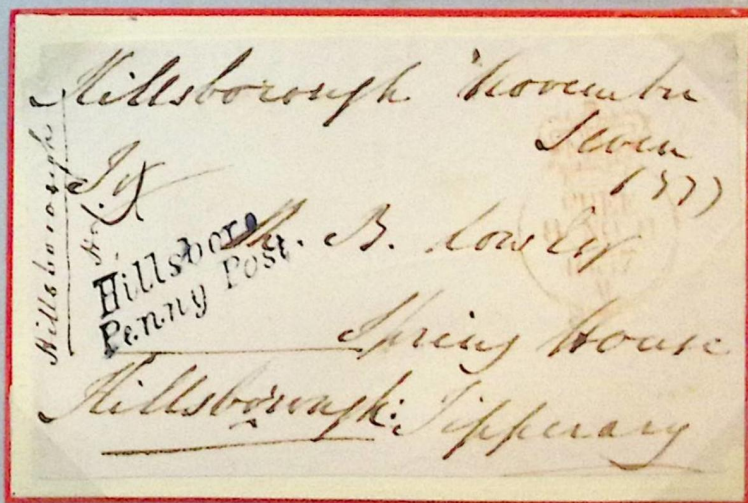 Hillsborough November
Seven
1837
Hillsboro
Penny Post
B.
Spring House
Hillsborough: Tipperary
Hillsborough